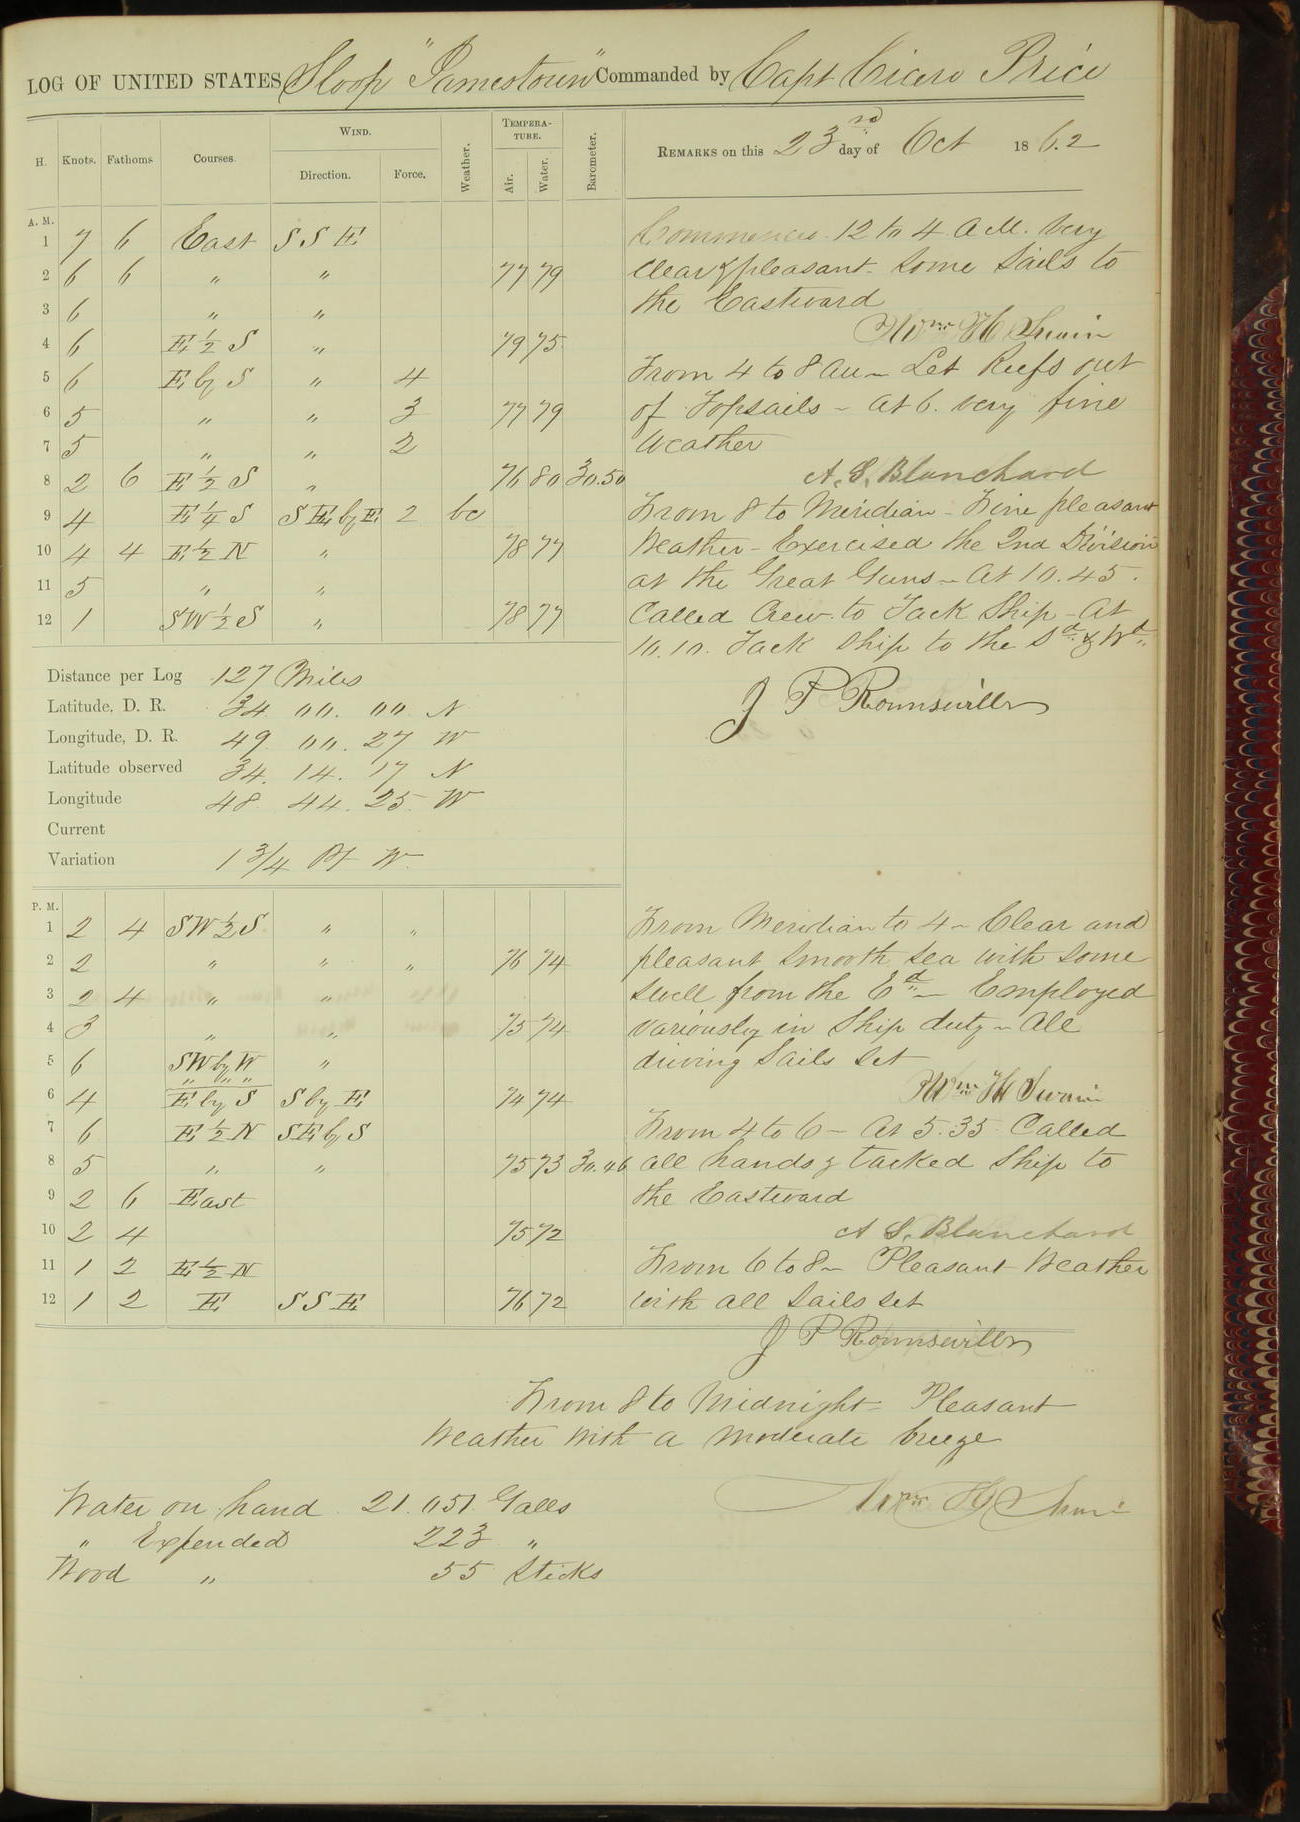 LOG OF UNITED STATES Sloop "Jamestown" Commanded by Capt Cicero Price
H. Knots. Fathoms Courses. WIND. Direction. Force. Weather. TEMPERATURE. Air. Water. Barometer. REMARKS on this 23rd day of Oct 1862
A. M.
1 7 6 East SSE
2 6 6 " " 77 79
3 6 " "
4 6 E ½ S " 79 75
5 6 E by S " 4
6 5 " " 3 77 79
7 5 " " 2
8 2 6 E ½ S " 76 80 30.50
9 4 E ¼ S SE by E 2 bc
10 4 4 E ½ N " 78 77
11 5 " "
12 1 SW ½ S " 78 77
Commences 12 to 4 AM. Very
clear & pleasant - Some Sails to
the Eastward
Wm H Swain
From 4 to 8 AM - Let Reefs out
of Topsails - At 6. very fine
Weather
A. S. Blanchard
From 8 to Meridian - Fine pleasant
Weather - Exercised the 2nd Division
at the Great Guns - At 10.45.
Called Crew to Tack Ship - At
10.10. Tack Ship to the Sd & Wd
J P Rounsevilles
Distance per Log 127 Miles
Latitude, D. R. 34. 00. 00 N
Longitude, D. R. 49. 00. 27 W
Latitude observed 34. 14. 17 N
Longitude 48. 44. 25. W
Current
Variation 1 3/4 Pt W.
P. M.
1 2 4 SW ½ S " "
2 2 " " " 76 74
3 2 4 " "
4 3 " " 75 74
5 6 SW by W "
" " "
6 4 E by S S by E 74 74
7 6 E ½ N SE by S
8 5 " " 75 73 30.46
9 2 6 East
10 2 4 75 72
11 1 2 E ½ N
12 1 2 E SSE 76 72
From Meridian to 4 - Clear and
pleasant smooth sea with some
swell from the Ed - Employed
variously in Ship duty - All
driving Sails set
Wm H Swain
From 4 to 6 - At 5.35 Called
all hands & tacked Ship to
the Eastward
A S. Blanchard
From 6 to 8 - Pleasant Weather
with all Sails set
J P Rounsevilles
From 8 to Midnight - Pleasant
Weather with a moderate breeze
Wm H Swain
Water on hand 21.051 Galls
" Expended 223 "
Wood " 55 Sticks